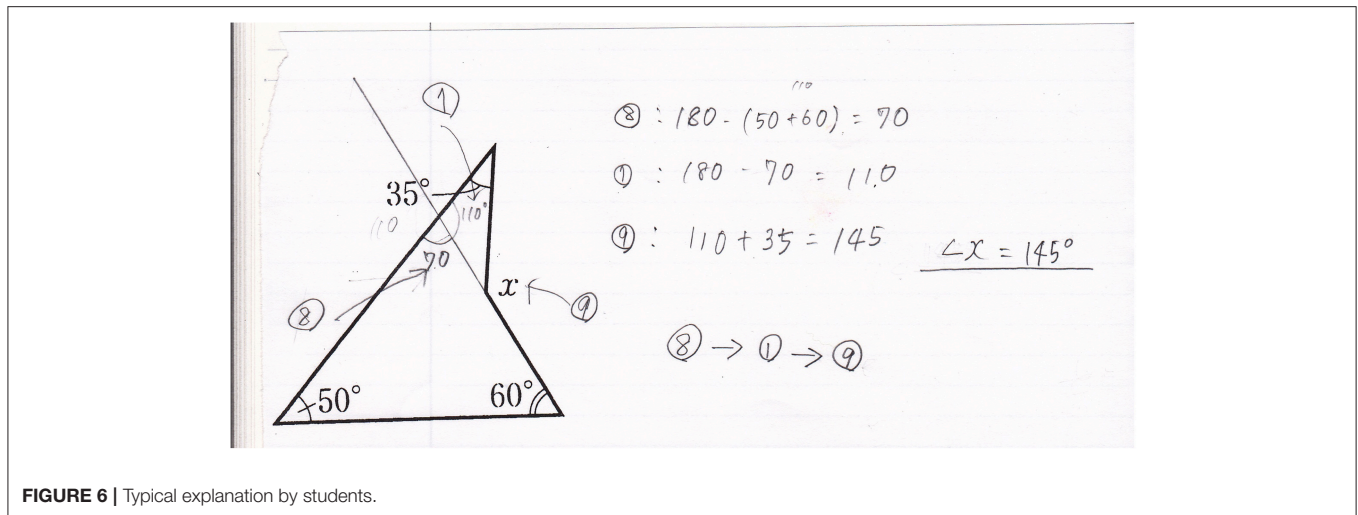 ①
35°
110
110°
70
x
⑧
⑨
50°
60°
110
⑧ : 180 - (50+60) = 70
① : 180 - 70 = 110
⑨ : 110 + 35 = 145
∠x = 145°
⑧ → ① → ⑨
FIGURE 6 | Typical explanation by students.